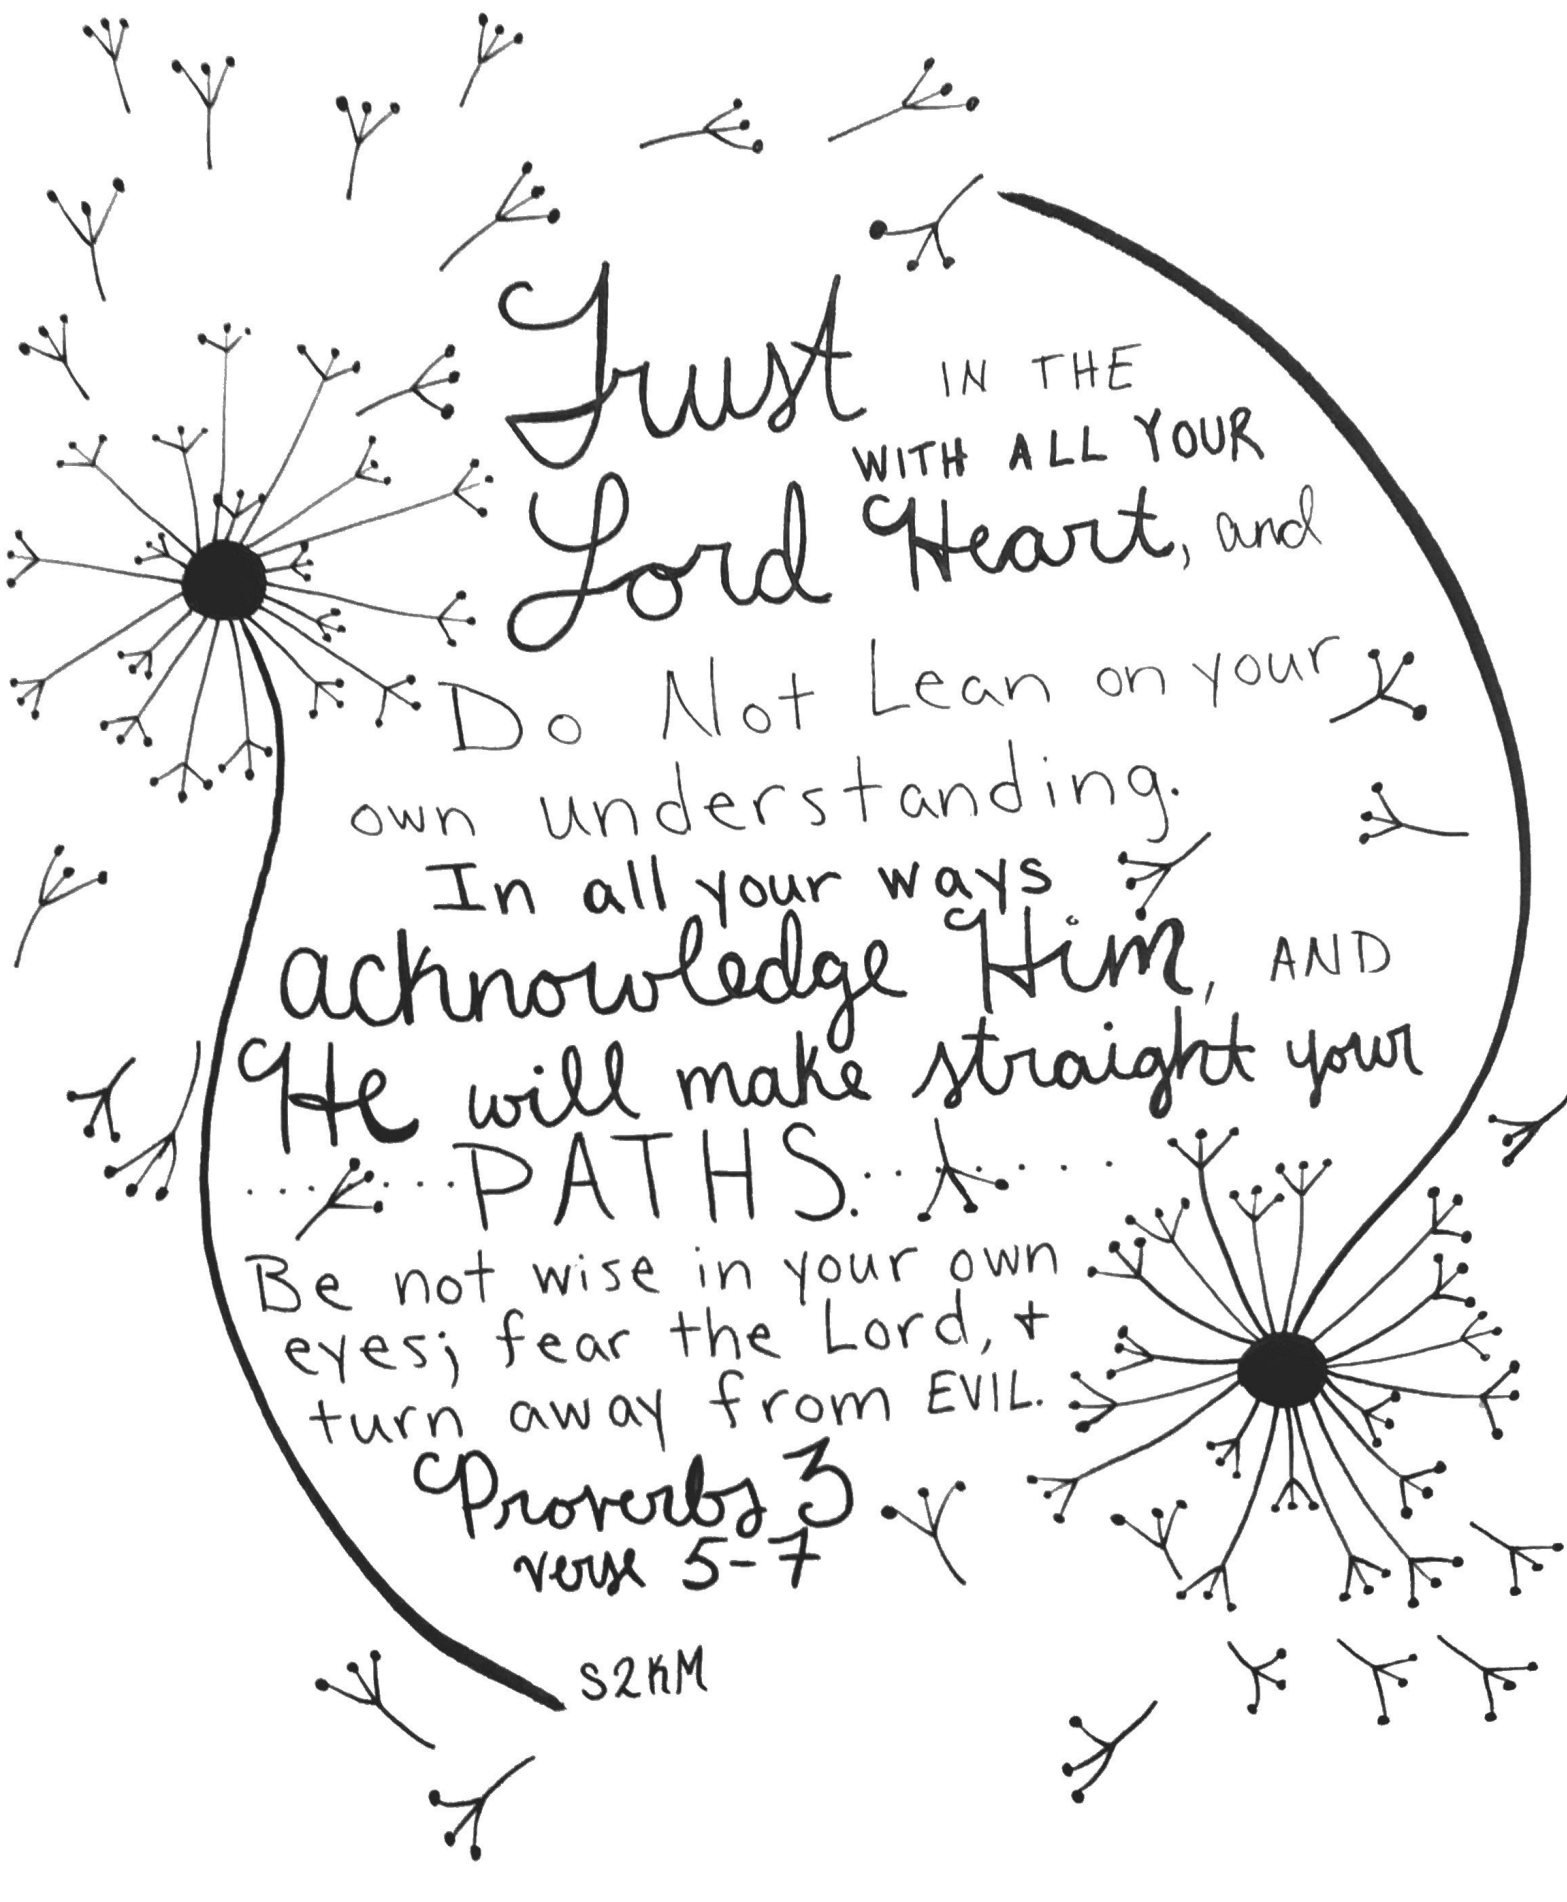 Trust IN THE
Lord WITH ALL YOUR
Heart, and
Do Not Lean on your
own understanding.
In all your ways
acknowledge Him, AND
He will make straight your
....PATHS.......
Be not wise in your own
eyes; fear the Lord, +
turn away from EVIL.
Proverbs 3
verse 5-7
S2KM